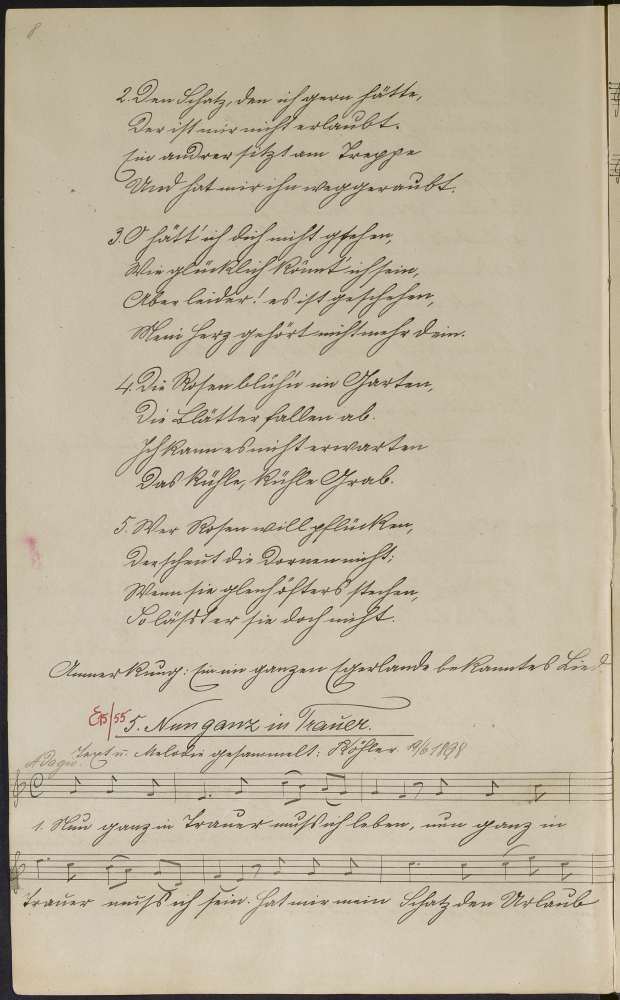 8
2. Den Schatz, den ich gern hätte,
Der ist mir nicht erlaubt.
Ein andrer sitzt am Treppe
Und hat mir ihn weggeraubt.
3. O hätt' ich dich nicht gsehen,
Wie glücklich könnt' ich sein,
Aber leider! es ist geschehen,
Mein Herz gehört nicht mehr dein.
4. Die Rosen blüh'n im Garten,
Die Blätter fallen ab.
Ich kann es nicht erwarten
Das kühle, kühle Grab.
5. Wer Rosen will pflücken,
Der scheut die Dornen nicht;
Wenn sie gleich öfters stechen,
So lässt er sie doch nicht.
Anmerkung: Ein im ganzen Egerlande bekanntes Lied
E 15/55 5. Nun ganz in Trauer.
Adagio. Text u. Melodie gesammelt: Köhler 19/6 1898
1. Nun ganz in Trauer muß ich leben, nun ganz in
Trauer muß ich sein. Hat mir mein Schatz den Urlaub